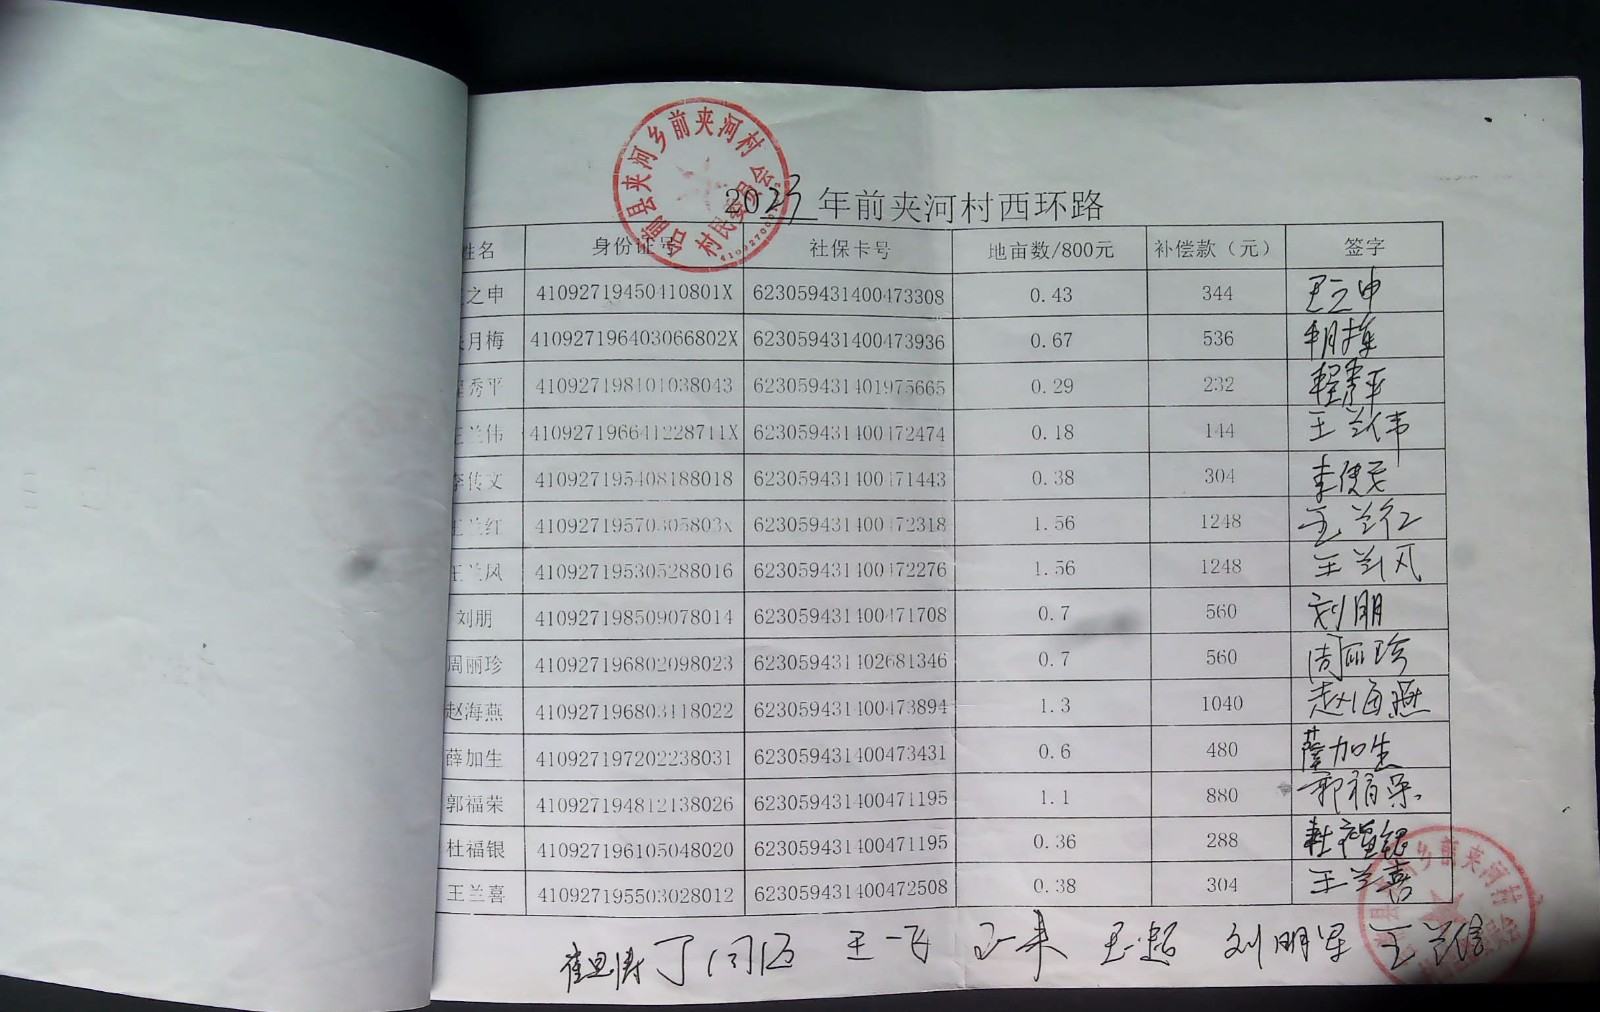 台前县夹河乡前夹河村
村民委员会
2023年前夹河村西环路
姓名 身份证号 社保卡号 地亩数/800元 补偿款（元） 签字
之申 41092719450410801X 623059431400473308 0.43 344 王之申
月梅 410927196403066802X 623059431400473936 0.67 536
秀平 410927198101038043 623059431401975665 0.29 232 程秀平
王兰伟 410927196641228711X 623059431400472474 0.18 144 王兰伟
李传文 410927195408188018 623059431400471443 0.38 304 李传文
王兰红 41092719570305803x 623059431400472318 1.56 1248 王兰红
王兰风 410927195305288016 623059431400472276 1.56 1248 王兰风
刘朋 410927198509078014 623059431400471708 0.7 560 刘朋
周丽珍 410927196802098023 623059431402681346 0.7 560 周丽珍
赵海燕 410927196803118022 623059431400473894 1.3 1040 赵海燕
薛加生 410927197202238031 623059431400473431 0.6 480 薛加生
郭福荣 410927194812138026 623059431400471195 1.1 880 郭福荣
杜福银 410927196105048020 623059431400471195 0.36 288 杜福银
王兰喜 410927195503028012 623059431400472508 0.38 304 王兰喜
丁 王一飞 王超 刘明军 王兰信
乡前夹河村